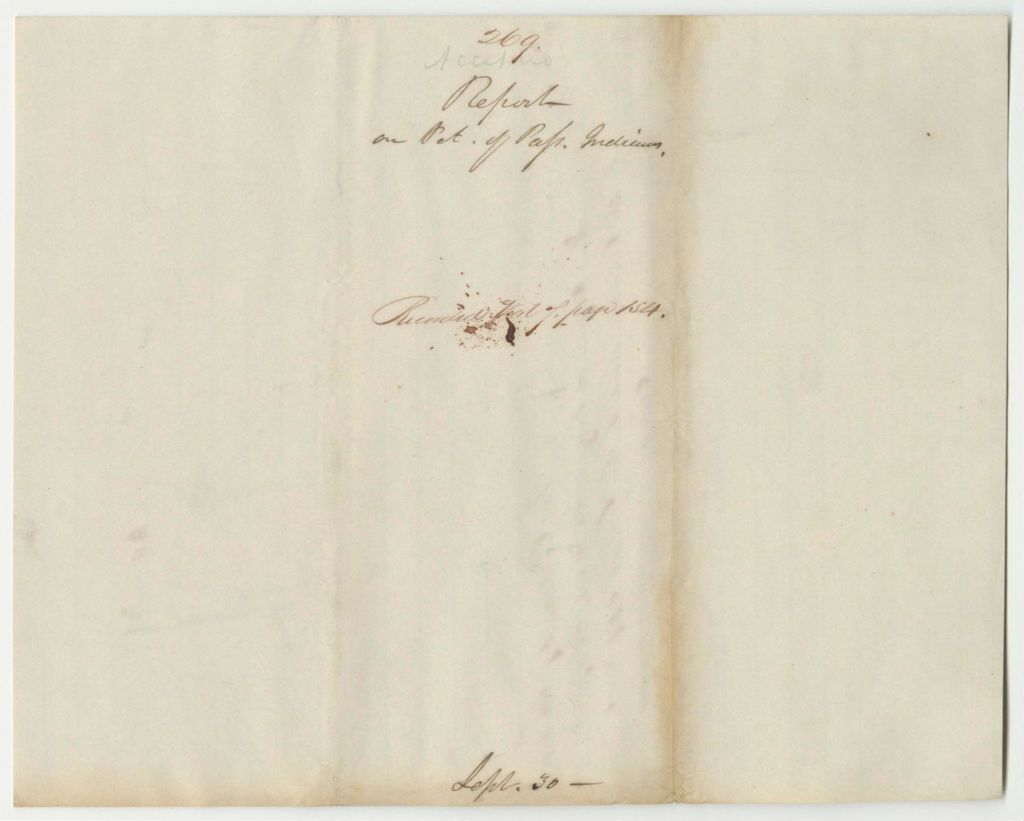 269.
Accepted
Report
on Pet. of Pass. Indians.
Recorded Vol 7. page 154.
Sept. 30 —